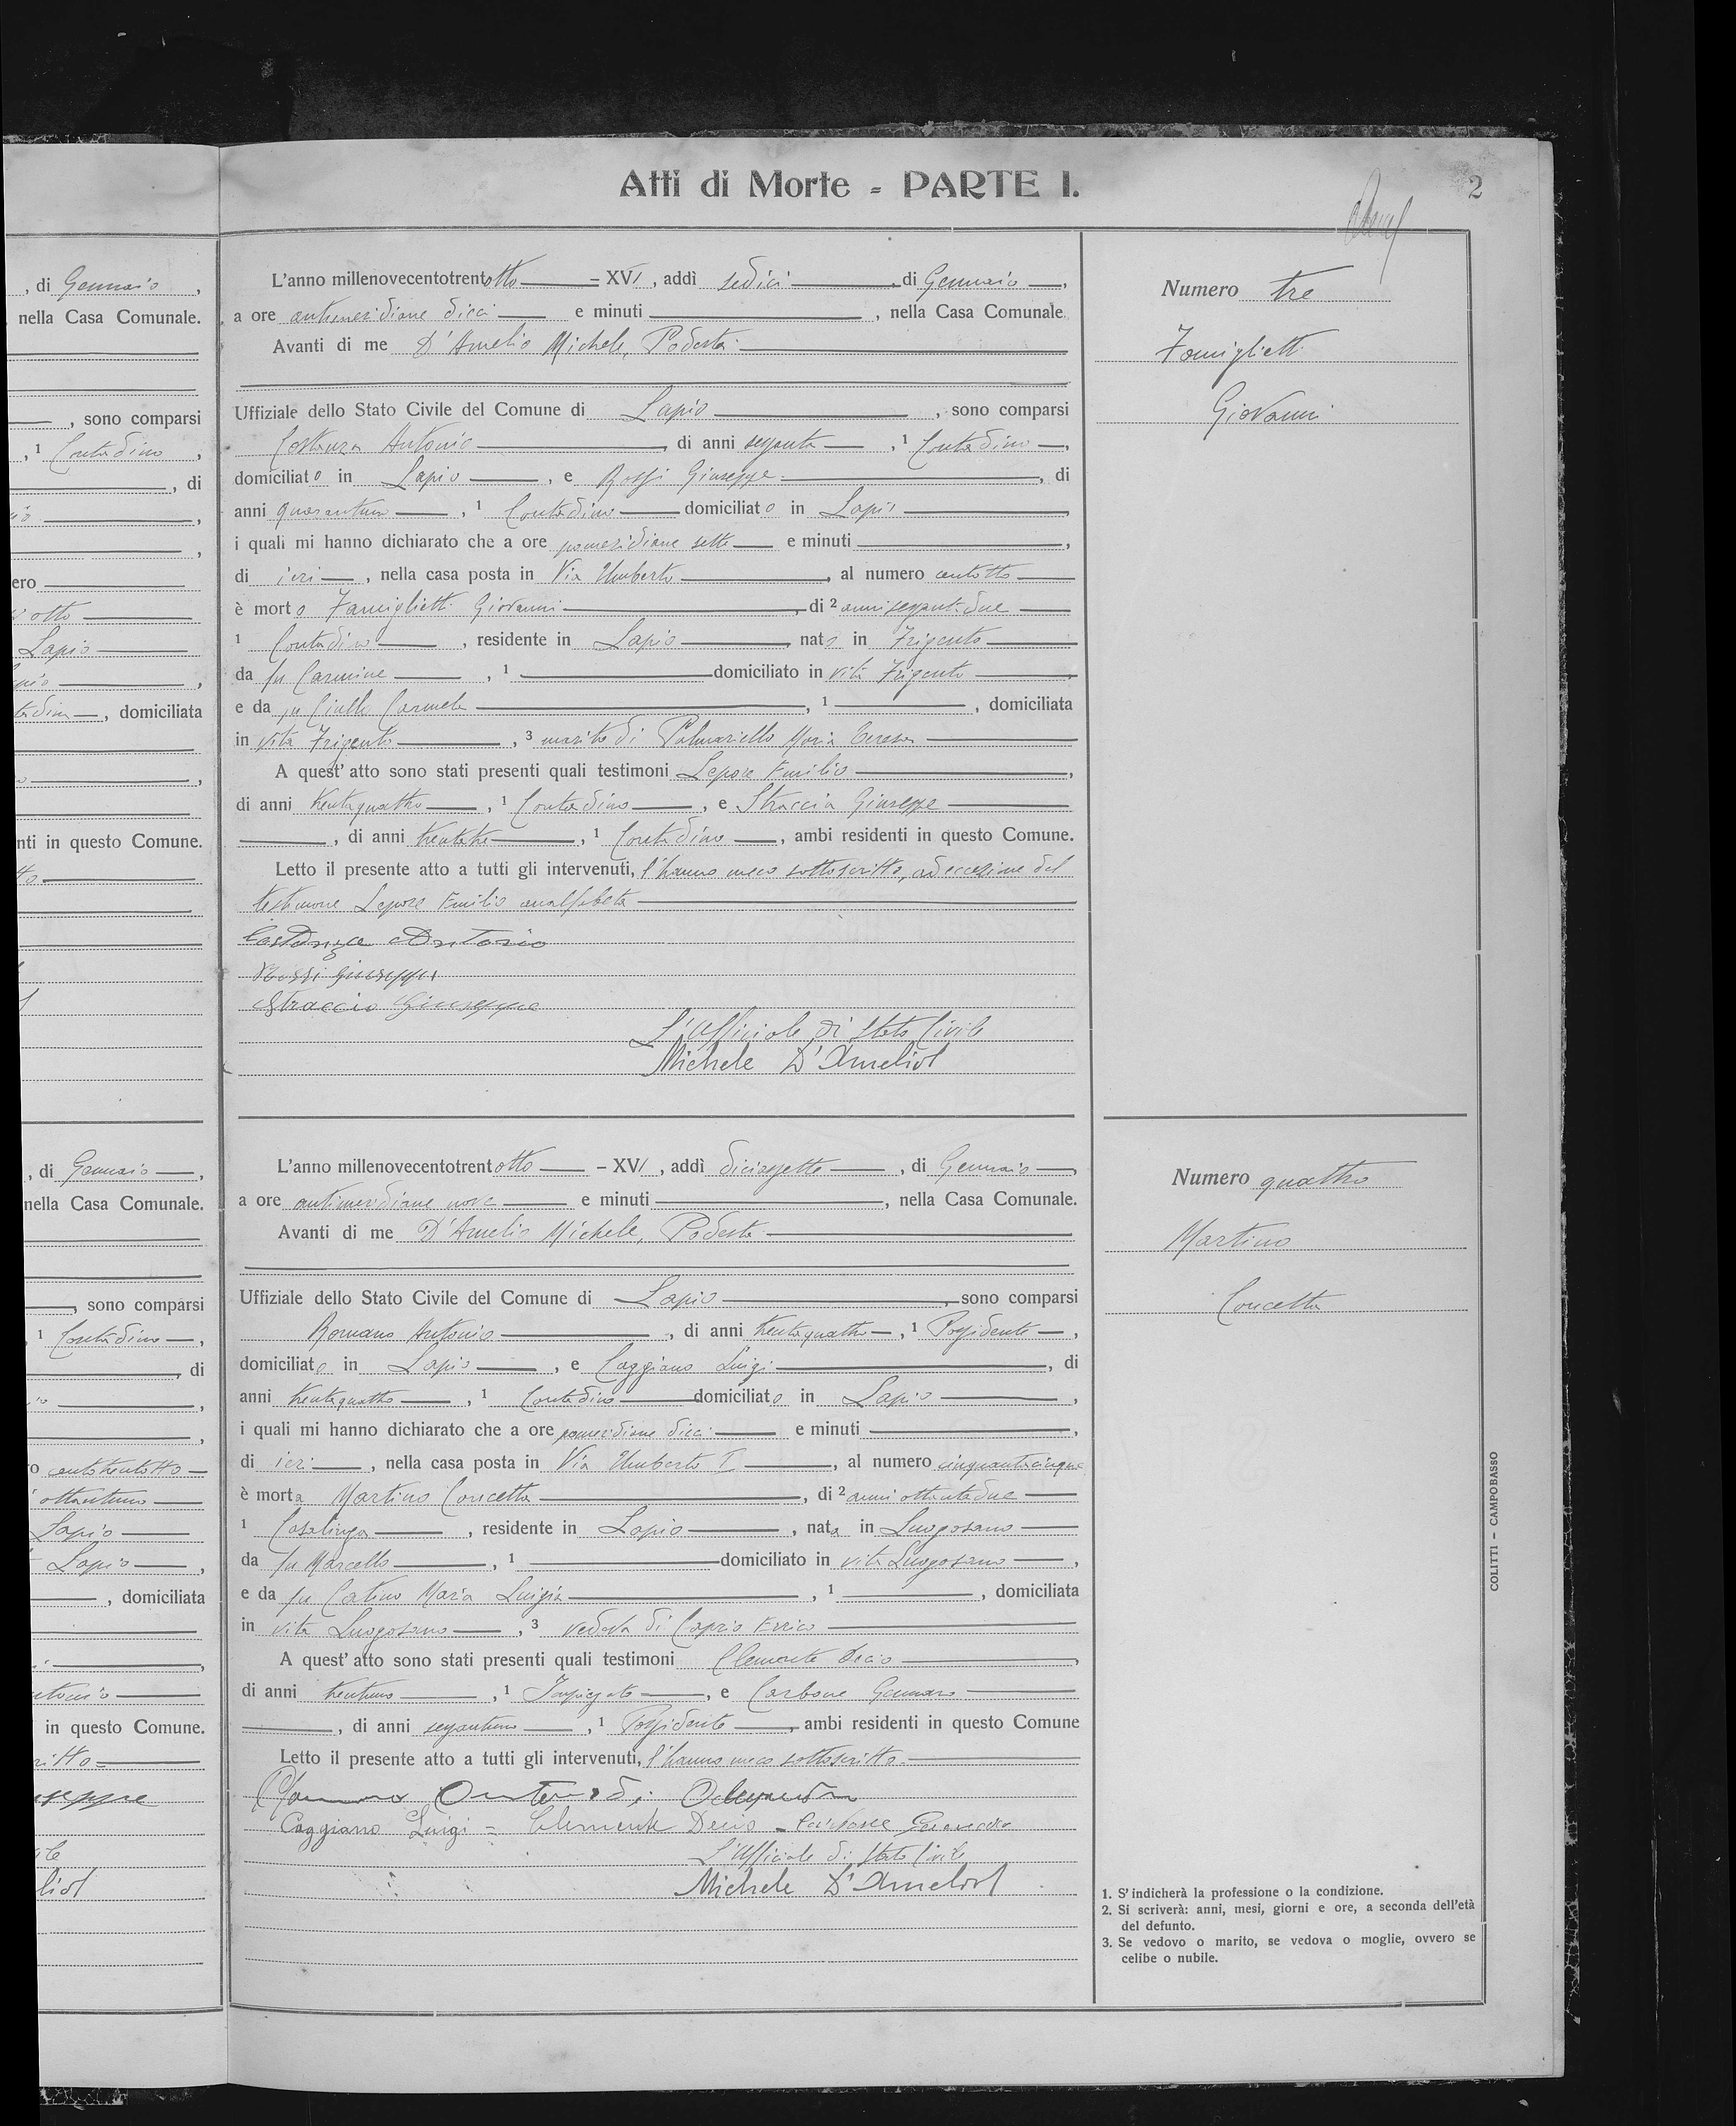 Atti di Morte - PARTE I.
2
L'anno millenovecentotrentotto = XVI, addì sedici, di Gennaio,
a ore antimeridiane dieci e minuti , nella Casa Comunale.
Avanti di me D'Amelio Michele, Podestà
Uffiziale dello Stato Civile del Comune di Lapio, sono comparsi
Costanza Antonio, di anni sessanta, 1 Contadino,
domiciliato in Lapio, e Rossi Giuseppe, di
anni quarantuno, 1 Contadino domiciliato in Lapio
i quali mi hanno dichiarato che a ore pomeridiane sette e minuti ,
di ieri, nella casa posta in Via Umberto, al numero centotto
è morto Famiglietti Giovanni, di 2 anni sessantadue
1 Contadino, residente in Lapio, nato in Frigento
da fu Carmine, 1 domiciliato in vita Frigento
e da fu Ciullo Carmela, 1 , domiciliata
in vita Frigento, 3 marito di Palmariello Maria Teresa
A quest'atto sono stati presenti quali testimoni Lepore Emilio,
di anni trentaquattro, 1 Contadino, e Straccia Giuseppe
, di anni trentatre, 1 Contadino, ambi residenti in questo Comune.
Letto il presente atto a tutti gli intervenuti, l'hanno meco sottoscritto, ad eccezione del
testimone Lepore Emilio analfabeta
Costanza Antonio
Rossi Giuseppe
Straccia Giuseppe
L'Ufficiale di Stato Civile
Michele D'Amelio
Numero tre
Famiglietti
Giovanni
L'anno millenovecentotrentotto - XVI, addì diciassette, di Gennaio,
a ore antimeridiane nove e minuti , nella Casa Comunale.
Avanti di me D'Amelio Michele, Podestà
Uffiziale dello Stato Civile del Comune di Lapio, sono comparsi
Romano Antonio, di anni trentaquattro, 1 Possidente,
domiciliato in Lapio, e Caggiano Luigi, di
anni trentaquattro, 1 Contadino domiciliato in Lapio,
i quali mi hanno dichiarato che a ore pomeridiane dieci e minuti ,
di ieri, nella casa posta in Via Umberto I, al numero cinquantacinque
è morta Martino Concetta, di 2 anni ottantadue
1 Casalinga, residente in Lapio, nata in Luogosano
da fu Marcello, 1 domiciliato in vita Luogosano,
e da fu Catino Maria Luigia, 1 , domiciliata
in vita Luogosano, 3 vedova di Caprio Errico
A quest'atto sono stati presenti quali testimoni Clemente Decio,
di anni trentuno, 1 Impiegato, e Carbone Gennaro
, di anni sessantuno, 1 Possidente, ambi residenti in questo Comune
Letto il presente atto a tutti gli intervenuti, l'hanno meco sottoscritto.
Romano Antonio di
Caggiano Luigi = Clemente Decio - Carbone Gennaro
L'Ufficiale di Stato Civile
Michele D'Amelio
Numero quattro
Martino
Concetta
1. S'indicherà la professione o la condizione.
2. Si scriverà: anni, mesi, giorni e ore, a seconda dell'età
del defunto.
3. Se vedovo o marito, se vedova o moglie, ovvero se
celibe o nubile.
COLITTI - CAMPOBASSO
, di Gennaio,
nella Casa Comunale.
, sono comparsi
, 1 Contadino,
, di
ero
otto
Lapio
, domiciliata
nti in questo Comune.
, di Gennaio,
nella Casa Comunale.
, sono comparsi
1 Contadino,
, di
o centotrentotto
ottantuno
Lapio
Lapio,
, domiciliata
in questo Comune.